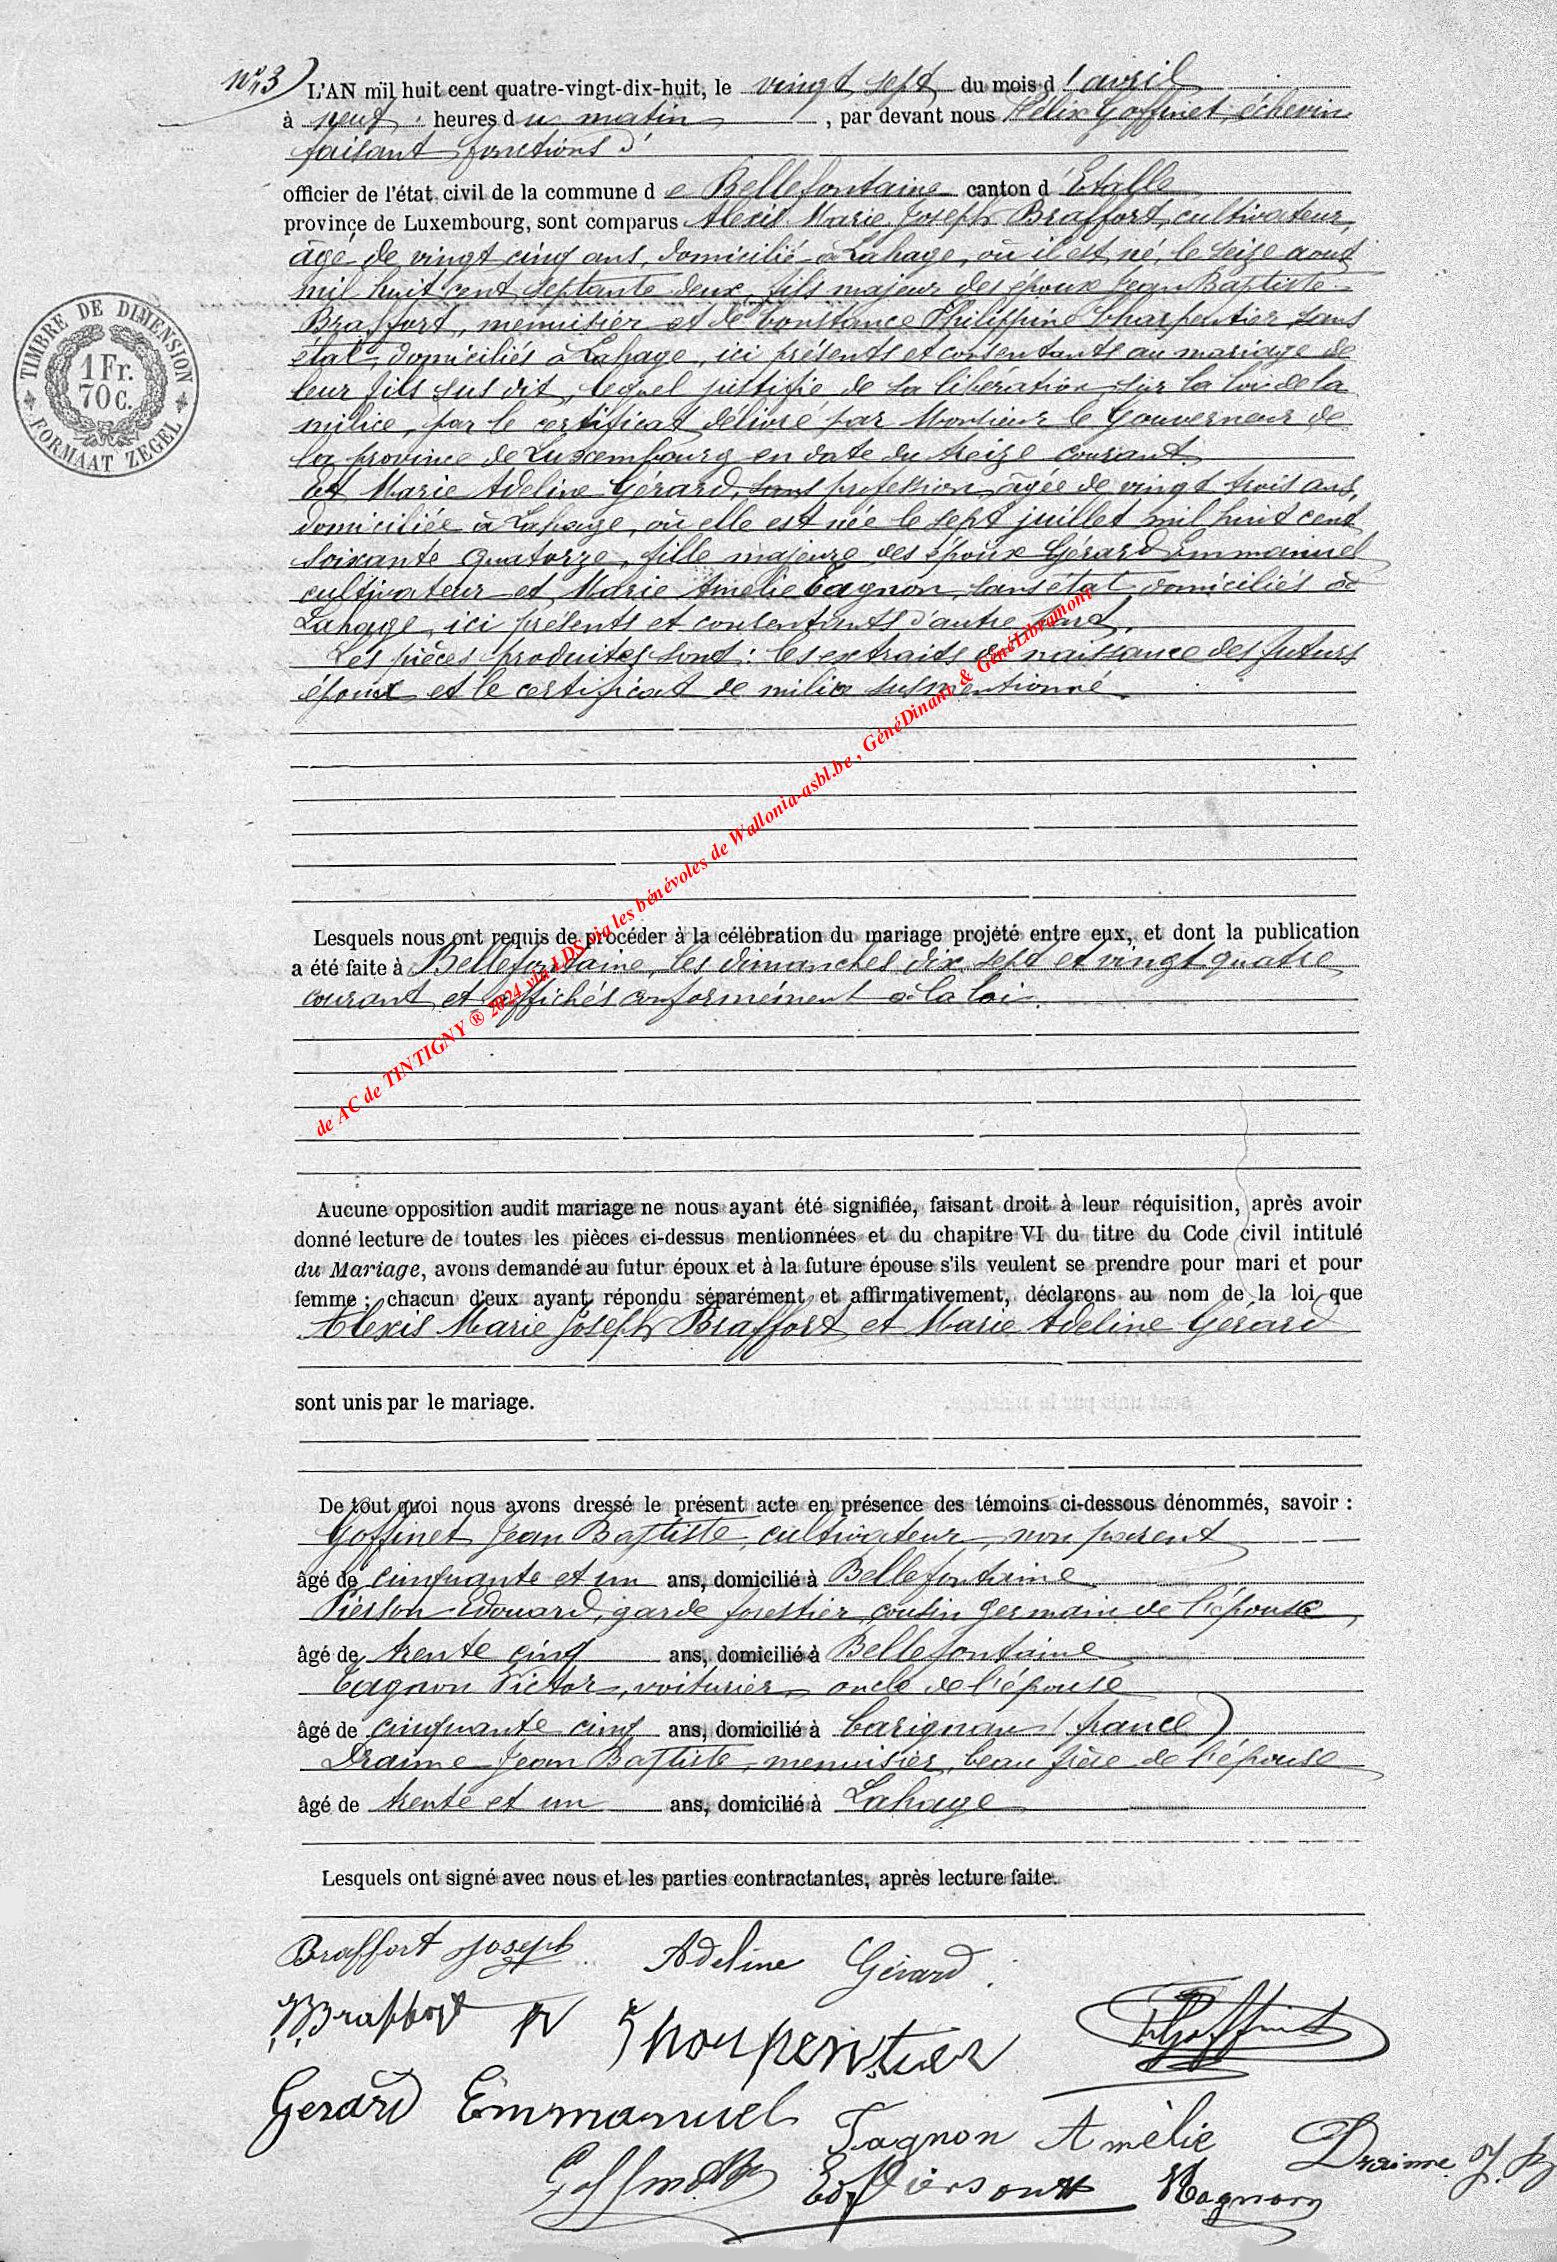 N° 3) L'AN mil huit cent quatre-vingt-dix-huit, le vingt sept du mois d'avril
à neuf heures du matin, par devant nous Félix Goffinet, échevin
faisant fonctions d'
officier de l'état civil de la commune de Bellefontaine canton d'Etalle
province de Luxembourg, sont comparus Alexis Marie Joseph Braffort, cultivateur,
âgé de vingt cinq ans, domicilié à Lahage, où il est né, le seize aout
mil huit cent septante deux, fils majeur des époux Jean Baptiste
Braffort, menuisier et de Constance Philippine Charpentier sans
état, domiciliés à Lahage, ici présents et consentants au mariage de
leur fils sus dit, lequel justifie de sa libération sur la loi de la
milice, par le certificat délivré par Monsieur le Gouverneur de
la province de Luxembourg en date du treize courant.
Et Marie Adeline Gérard, sans profession, âgée de vingt trois ans,
domiciliée à Lahage, où elle est née le sept juillet mil huit cent
soixante quatorze, fille majeure des époux Gérard Emmanuel
cultivateur et Marie Amélie Tagnon, sans état domiciliés à
Lahage, ici présents et consentants d'autre part.
Les pièces produites sont : les extraits de naissance des futurs
époux et le certificat de milice susmentionné.
de AC de TINTIGNY ® 2024 via LDS via les bénévoles de Wallonia-asbl.be , GénéDinant & GénéLibramont
TIMBRE DE DIMENSION
1 Fr.
70 C.
FORMAAT ZEGEL
Lesquels nous ont requis de procéder à la célébration du mariage projété entre eux, et dont la publication
a été faite à Bellefontaine, les dimanches dix sept et vingt quatre
courant et affichés conformément à la loi.
Aucune opposition audit mariage ne nous ayant été signifiée, faisant droit à leur réquisition, après avoir
donné lecture de toutes les pièces ci-dessus mentionnées et du chapitre VI du titre du Code civil intitulé
du Mariage, avons demandé au futur époux et à la future épouse s'ils veulent se prendre pour mari et pour
femme : chacun d'eux ayant répondu séparément et affirmativement, déclarons au nom de la loi que
Alexis Marie Joseph Braffort et Marie Adeline Gérard
sont unis par le mariage.
De tout quoi nous avons dressé le présent acte en présence des témoins ci-dessous dénommés, savoir :
Goffinet Jean Baptiste, cultivateur, non parent
âgé de cinquante et un ans, domicilié à Bellefontaine
Pierson Edouard, garde forestier, cousin germain de l'épouse,
âgé de trente cinq ans, domicilié à Bellefontaine
Tagnon Victor, voiturier, oncle de l'épouse
âgé de cinquante cinq ans, domicilié à Carignan (france)
Draime Jean Baptiste, menuisier, beau frère de l'épouse
âgé de trente et un ans, domicilié à Lahage
Lesquels ont signé avec nous et les parties contractantes, après lecture faite.
Braffort Joseph Adeline Gérard.
Braffort Charpentier F Goffinet
Gerard Emmanuel
Tagnon Amélie Draime J. B
Goffinet JB Ed Pierson Tagnon